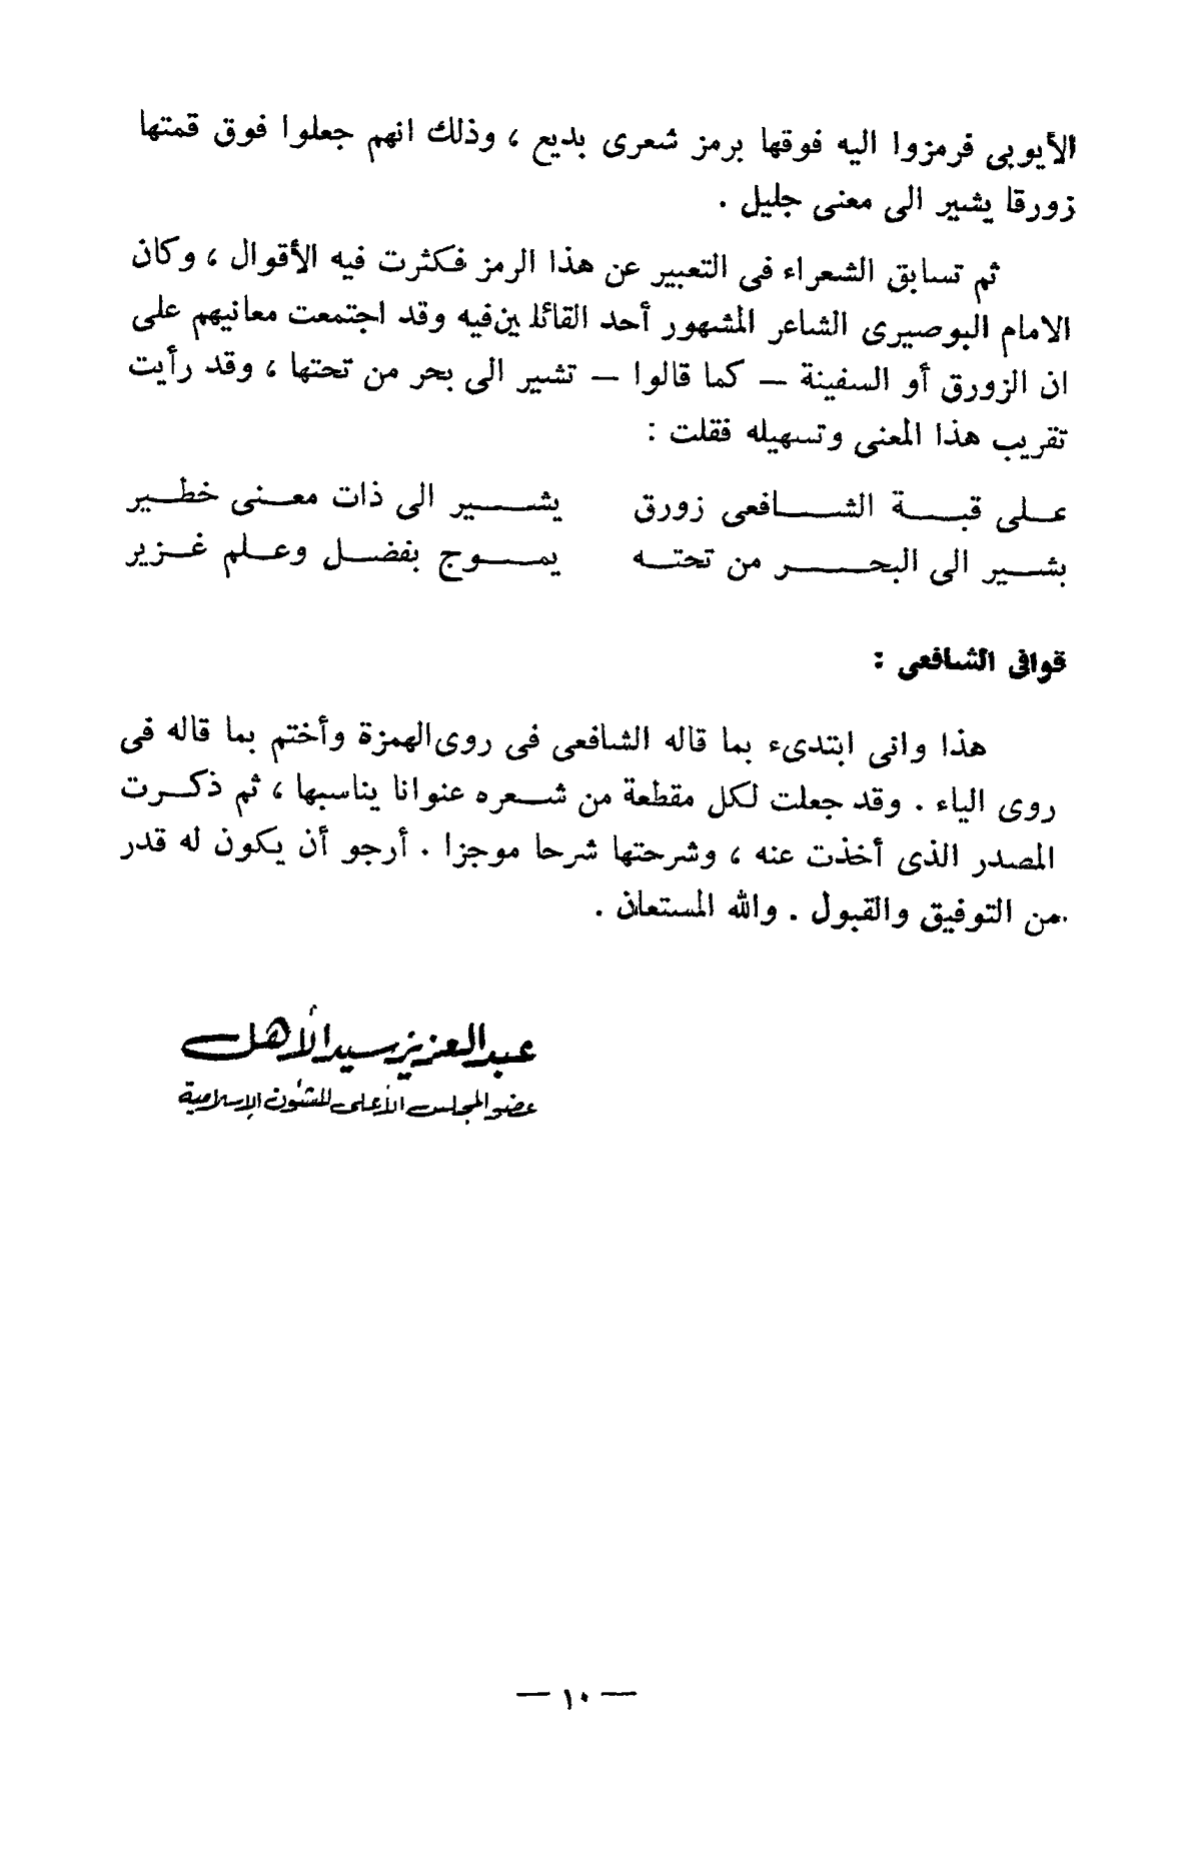 الأيوبى فرمزوا اليه فوقها برمز شعرى بديع ، وذلك انهم جعلوا فوق قمتها
زورقا يشير الى معنى جليل .
ثم تسابق الشعراء فى التعبير عن هذا الرمز فكثرت فيه الأقوال ، وكان
الامام البوصيرى الشاعر المشهور أحد القائلين فيه وقد اجتمعت معانيهم على
ان الزورق أو السفينة – كما قالوا – تشير الى بحر من تحتها ، وقد رأيت
تقريب هذا المعنى وتسهيله فقلت :
على قبة الشافعى زورق يشير الى ذات معنى خطير
بشير الى البحر من تحته يموج بفضل وعلم غزير
قوافى الشافعى :
هذا وانى ابتدىء بما قاله الشافعى فى روى الهمزة وأختم بما قاله فى
روى الياء . وقد جعلت لكل مقطعة من شعره عنوانا يناسبها ، ثم ذكرت
المصدر الذى أخذت عنه ، وشرحتها شرحا موجزا . أرجو أن يكون له قدر
من التوفيق والقبول . والله المستعان .
عبد العزيز سيد الأهل
عضو المجلس الأعلى للشئون الإسلامية
— ١٠ —